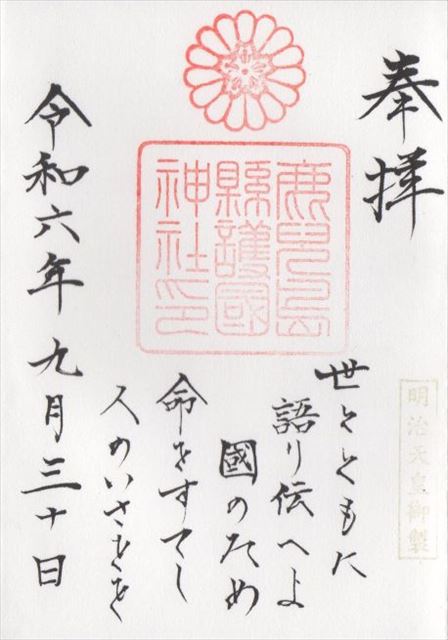 奉拝
鹿兒島
縣護國
神社印
明治天皇御製
世とともに
語り伝へよ
國のため
命をすてし
人のいさをを
令和六年九月三十日